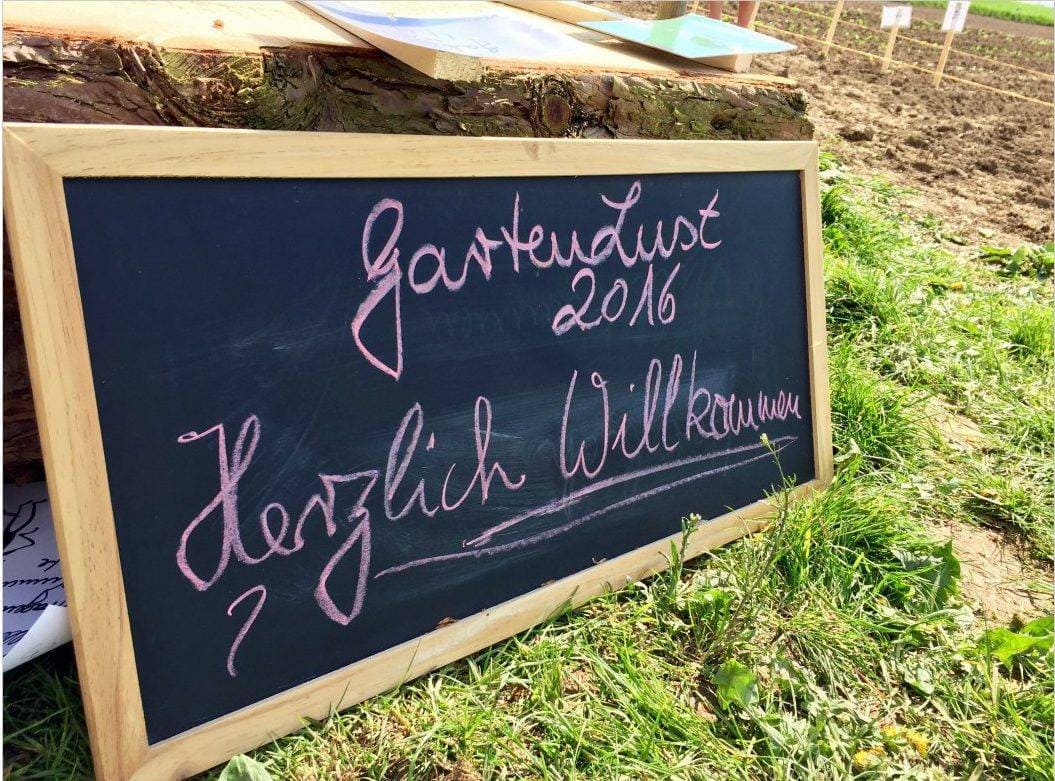 GartenLust
2016
Herzlich Willkommen